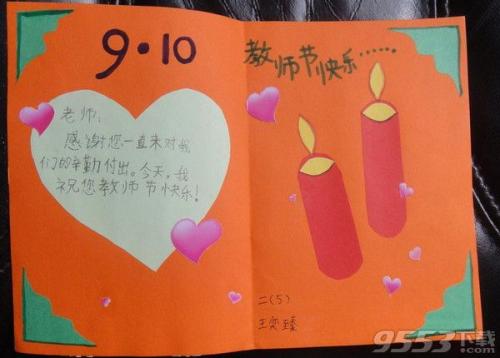 9·10
老师：
感谢您一直来对我
们的辛勤付出。今天，我
祝您教师节快乐！
教师节快乐……
二(5)
王奕臻
9553下载
.com